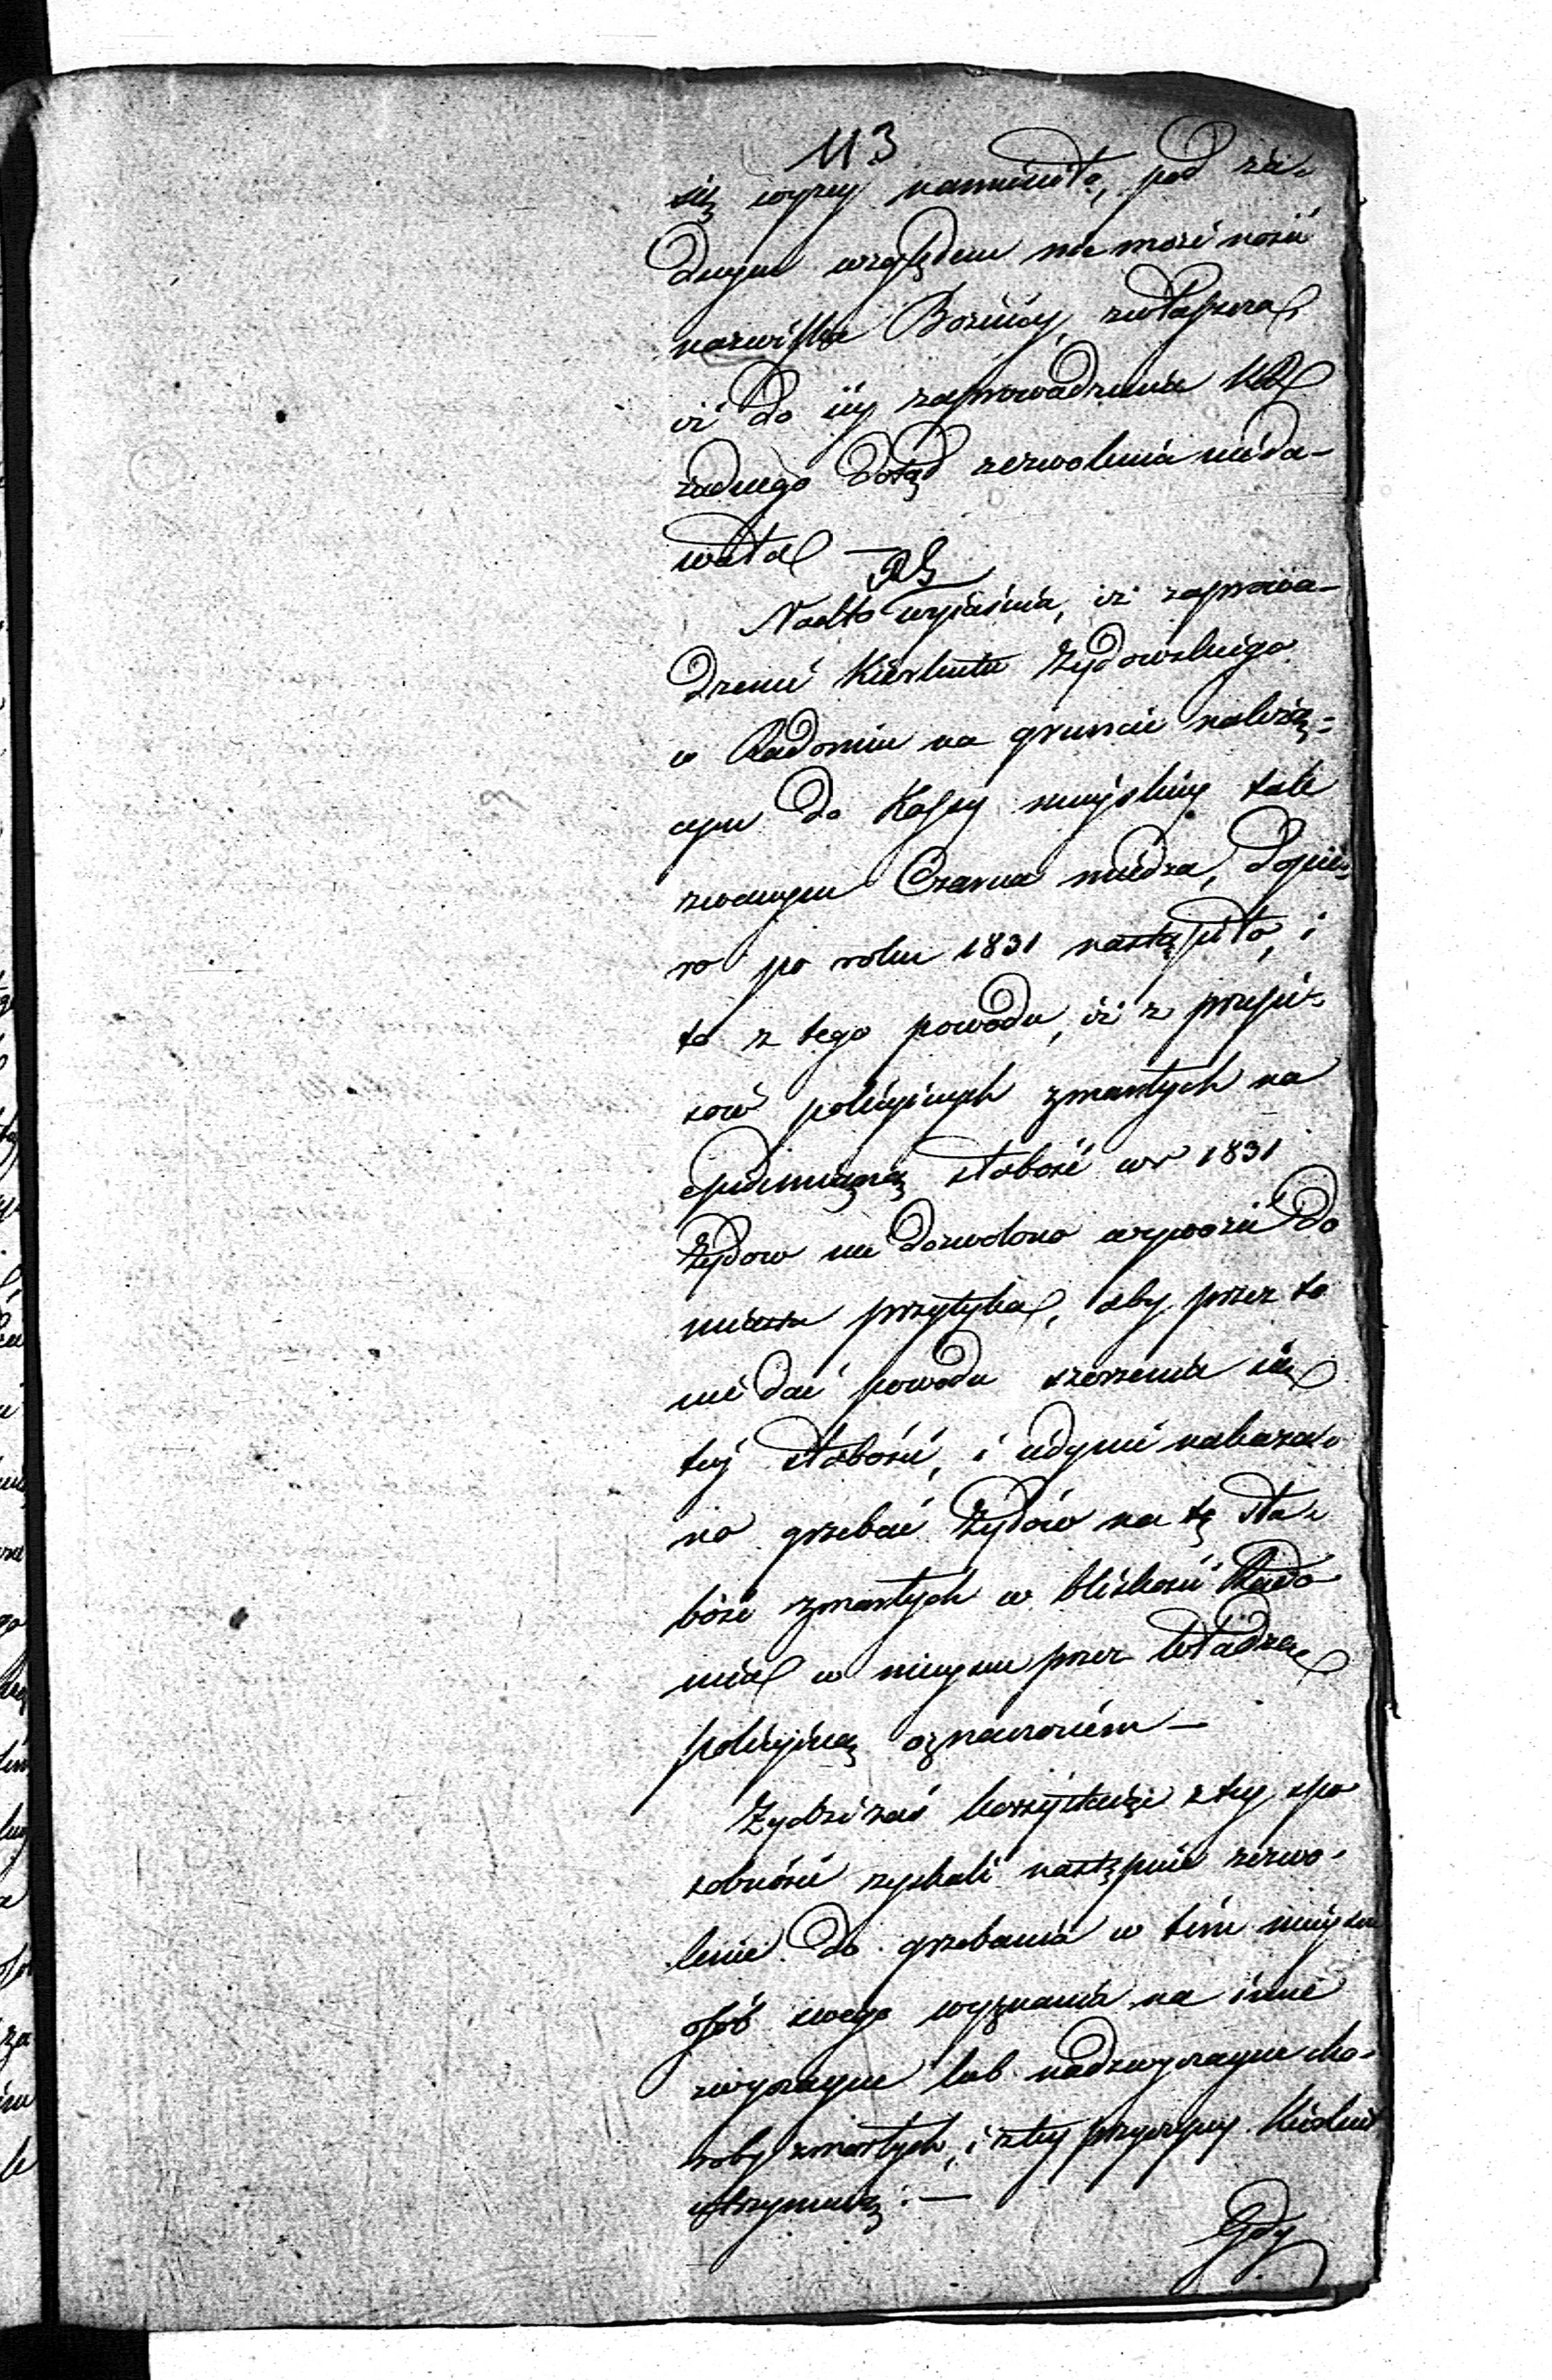 113
się wyżey namieniło, pod ża-
dnym względem nie może nosić
nazwiska Bożnicy, zwłaszcza
iż do iey zaprowadzenia KR
żadnego dotąd zezwolenia nieda-
wała —
Nadto RG wyiaśnia, iż zaprowa-
dzenie Kierkuta Żydowskiego
w Radomiu na gruncie należą-
cym do Kassy mieyskiey tak
zwanym Czarna miedza, dopie-
ro po roku 1831 nastąpiło, i
to z tego powodu, iż z przepi-
sów policyinych zmarłych na
epidemiczną słabość w r 1831
Żydow nie dozwolono wywozić do
miasta Przytyka, aby przez to
nie dać powodu szerzenia się
tey słabości, i iedynie nakaza-
no grzebać Żydów na tę sła-
bość zmarłych w bliskości Rado
mia w mieyscu przez Władzę
policyiną oznaczoném —
Żydzi zaś korzystaiąc z tey spo
sobności zyskali następnie zezwo-
lenie do grzebania w tém mieyscu
osób swego wyznania na inne
zwyczayne lub nadzwyczayne cho-
roby zmarłych, i z tey przyczyny Kierkut
utrzymuią. —
Gdy